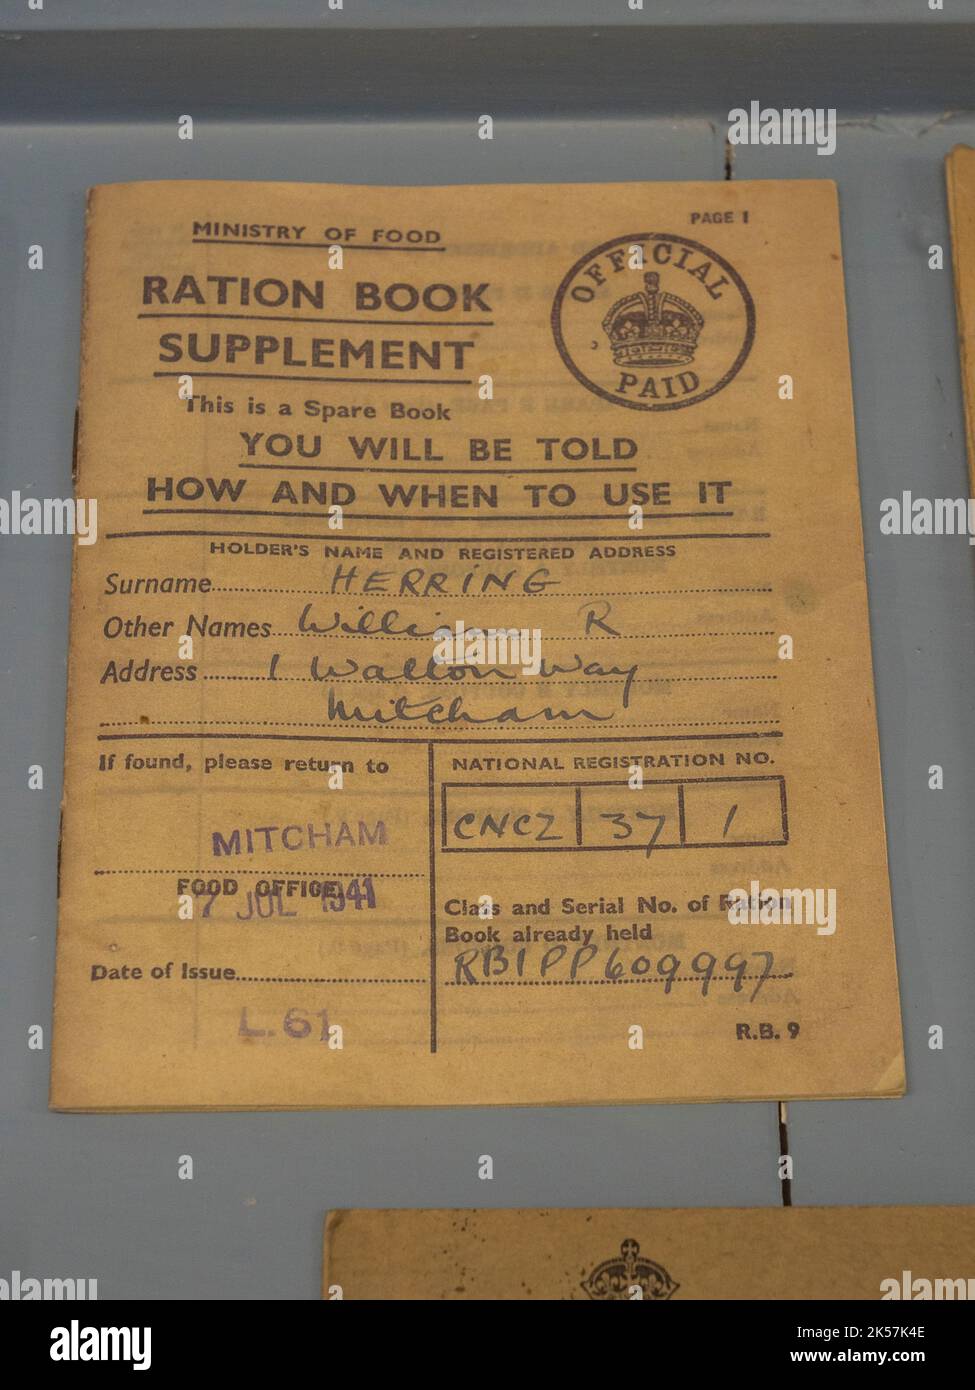 PAGE 1
MINISTRY OF FOOD
RATION BOOK
SUPPLEMENT
OFFICIAL
PAID
This is a Spare Book
YOU WILL BE TOLD
HOW AND WHEN TO USE IT
HOLDER'S NAME AND REGISTERED ADDRESS
Surname HERRING
Other Names William R
Address 1 Walton Way
Mitcham
If found, please return to
MITCHAM
FOOD OFFICE
7 JUL 1941
Date of Issue
L.61
NATIONAL REGISTRATION NO.
CNCZ 37 1
Class and Serial No. of Ration
Book already held
RB1PP609997
R.B. 9
alamy
Image ID: 2K57K4E
www.alamy.com